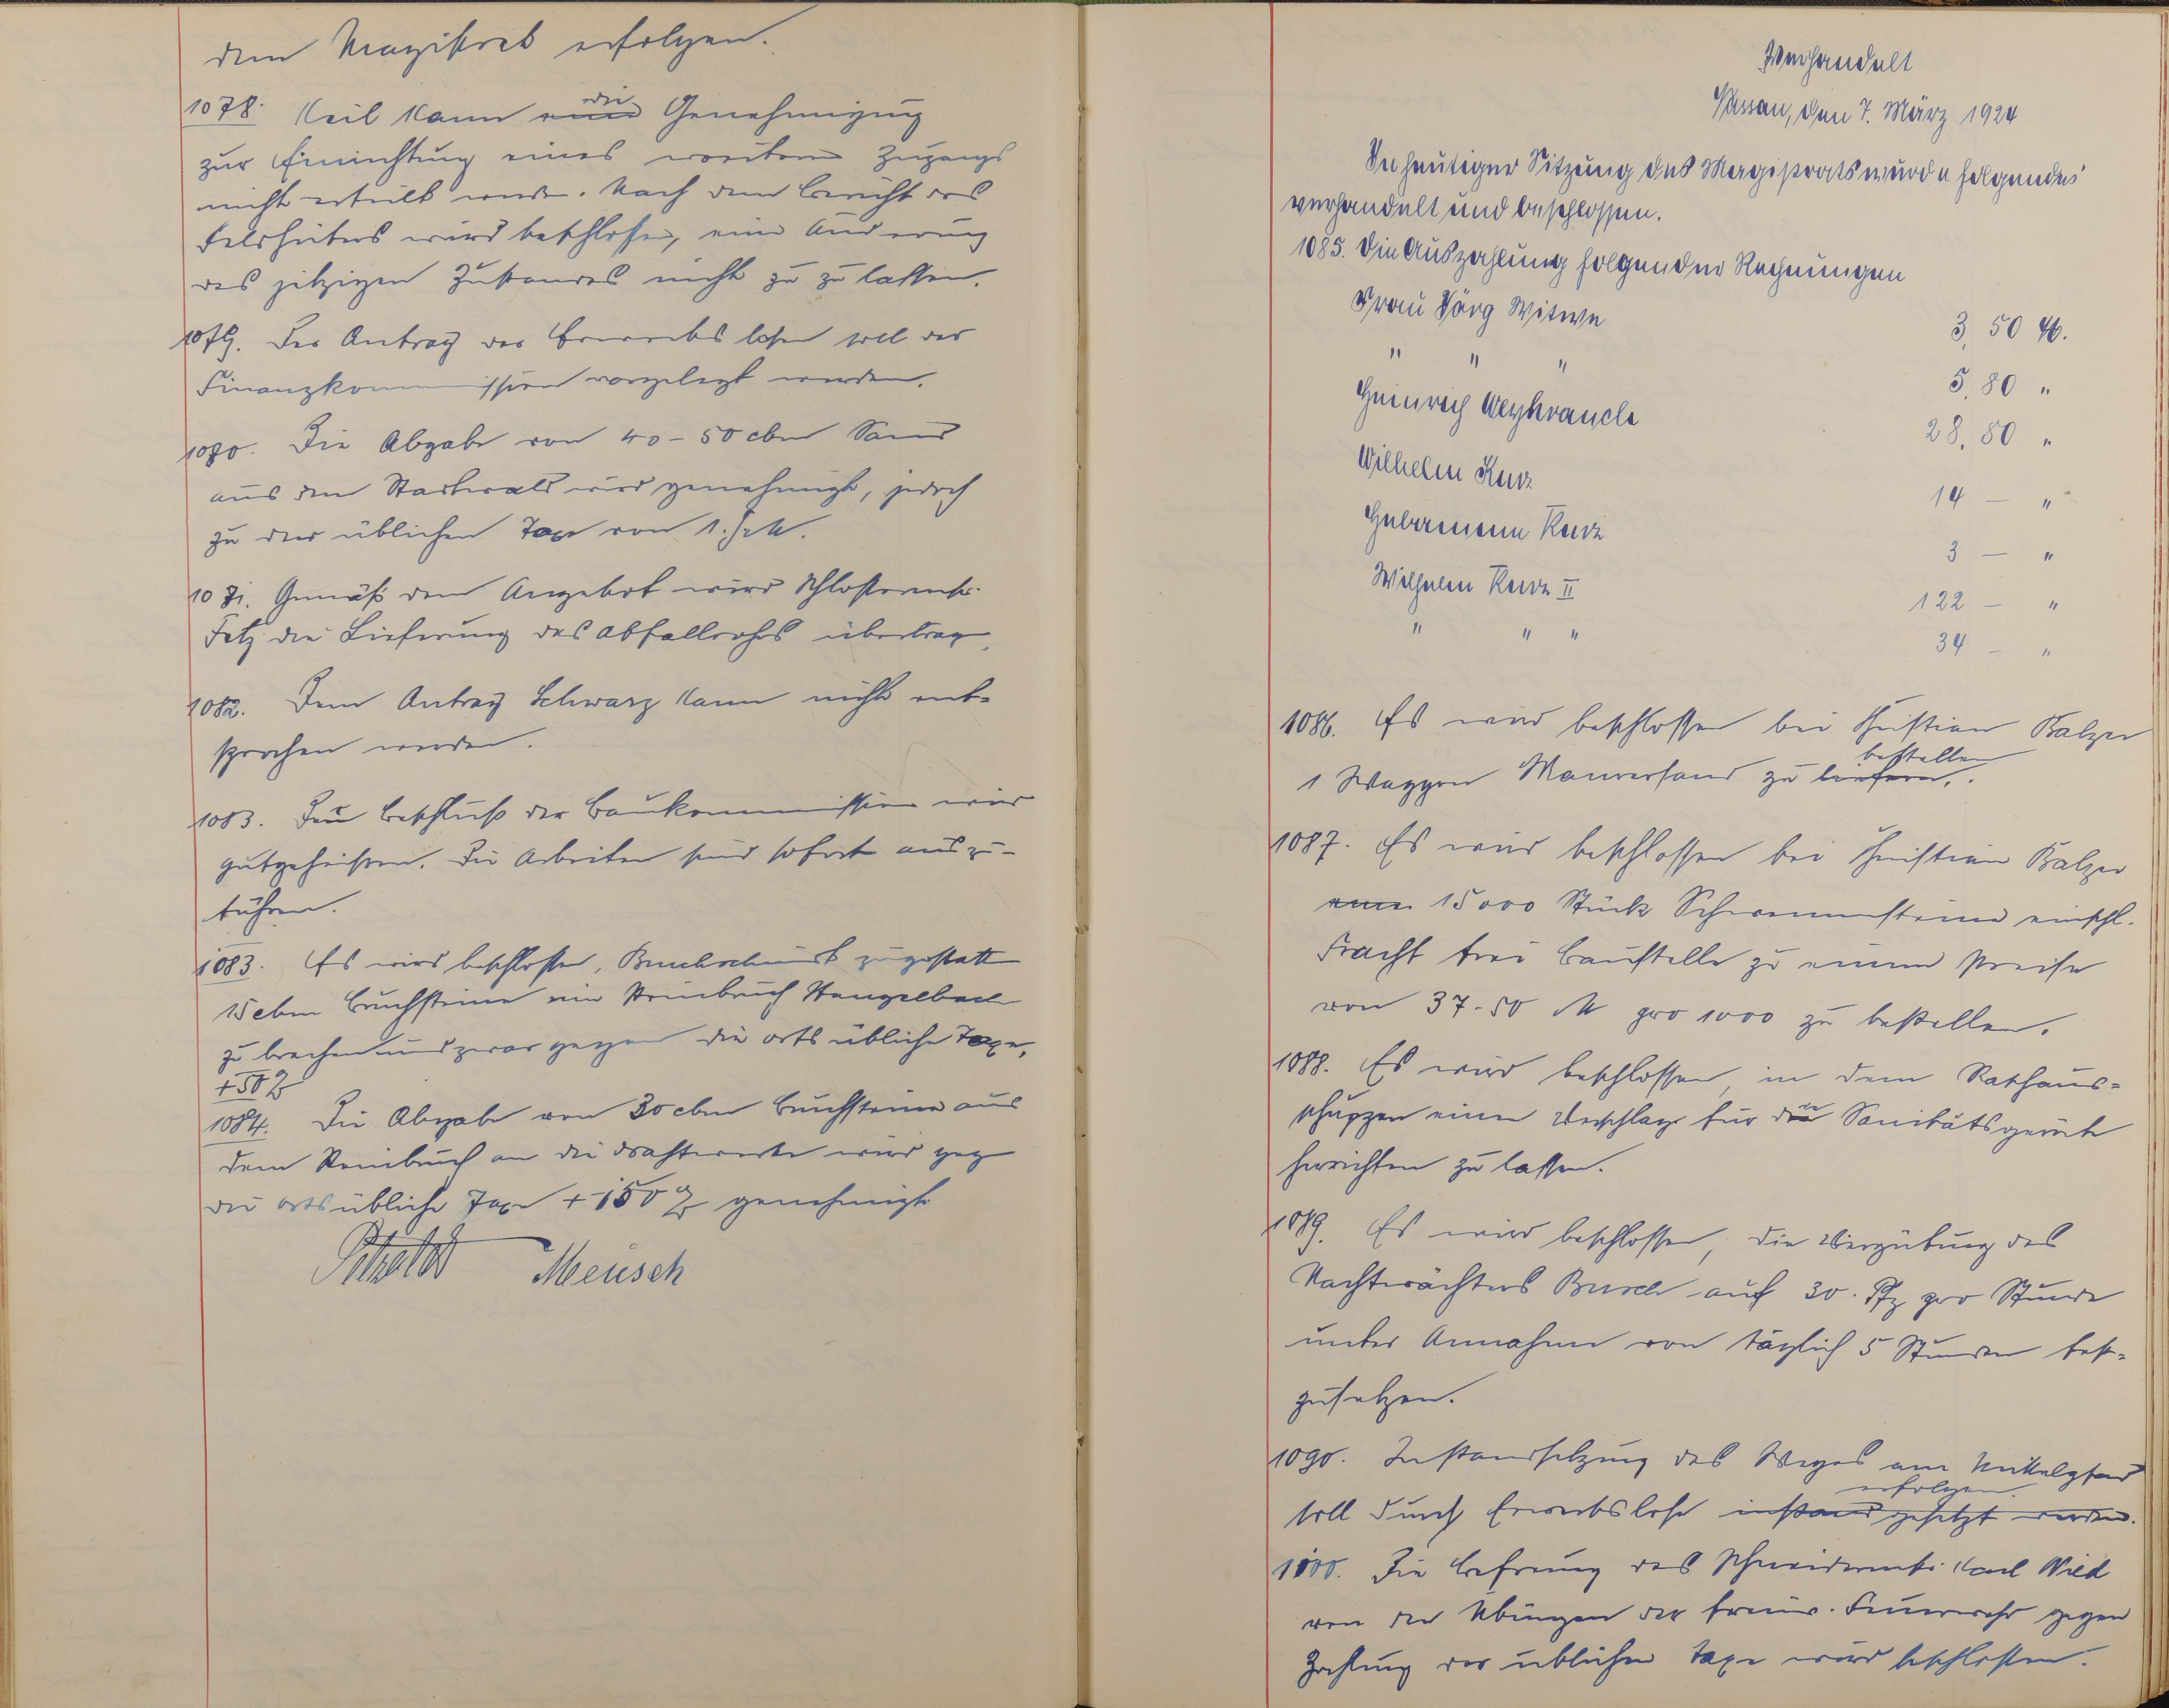 dem Magistrat erfolgen.
1078. Keil kann eine die Genehmigung
zur Einrichtung eines weiteren Zugangs
nicht erteilt werden. Nach dem Bericht des
Feldhüters wird beschlossen, eine Änderung
des jetzigen Zustandes nicht zu zu lassen.
1079. Der Antrag der Erwerbslosen soll der
Finanzkommission vorgelegt werden.
1080. Die Abgabe von 40-50 cbm Sand
aus dem Stadtwald wird genehmigt, jedoch
zu der üblichen Taxe von 1.
1081. Gemäß dem Angebot wird Schlossermstr.
Fetz die Lieferung des Abfallrohrs übertrag.
1082. Dem Antrag Schwarz kann nicht ent-
sprochen werden.
1083. Der Beschluß der Baukommission wird
gutgeheißen. Die Arbeiten sind sofort auszu-
führen.
1083. Es wird beschlossen, zugestatt
15 cbm Bruchsteine im Steinbruch Hangelbach
zu brechen und zwar gegen die ortsübliche Taxe,
+50%
1084. Die Abgabe von 30 cbm Bruchsteine aus
dem Steinbruch an die Drahtwerke wird geg
die ortsübliche Taxe +150% genehmigt
Meusch
Verhandelt
Nassau, den 7. März 1924
In heutiger Sitzung des Magistrats wurde folgendes
verhandelt und beschlossen.
1085. Die Auszahlung folgender Rechnungen
Frau Jörg Witwe 3,50 M.
" " " 5,80 "
Heinrich 28,80 "
Wilhelm Kurz 14 — "
Kurz 3 — "
Wilhelm Kurz II 122 — "
" " " 34 — "
1086. Es wird beschlossen bei Christian Balzer
1 Waggon Mauersand zu liefern. bestellen
1087. Es wird beschlossen bei Christian Balzer
eine 15000 Stück Schwemmsteine einschl.
Fracht frei Baustelle zu einem Preise
von 37-50 M pro 1000 zu bestellen.
1088. Es wird beschlossen, in dem Rathaus-
schuppen einen Verschlag für die Sanitätsgeräte
herrichten zu lassen.
1089. Es wird beschlossen, die Vergütung des
Nachtwächters Busch auf 30. Pfg pro Stunde
unter Annahme von täglich 5 Stunden fest-
zusetzen.
1090. Instandsetzung des Weges am Mittelpfad
soll durch Erwerbslose instand gesetzt werden. erfolgen.
1100. Die Befreiung des Schneidermstr. Karl Wild
von den Übungen der freiw. Feuerwehr gegen
Zahlung der üblichen Taxe wird beschlossen.